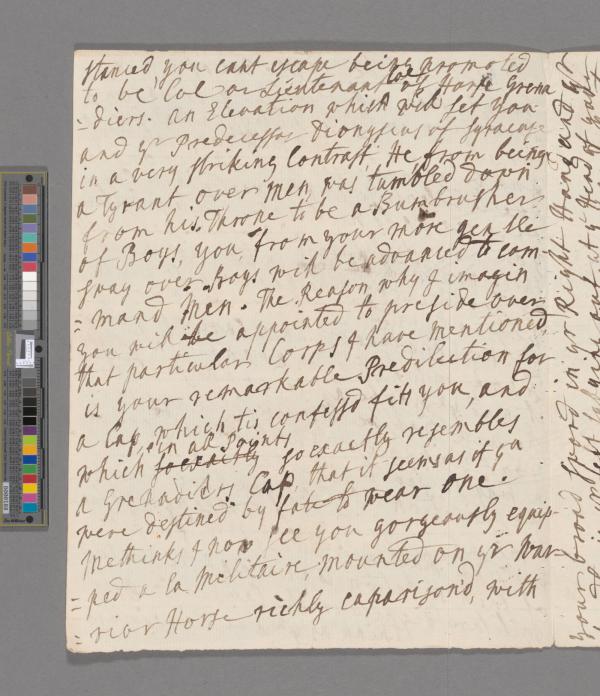 stanced you cant escape being promoted
to be Col or Lieutenant Col of Horse Grena
=diers. an Elevation which will set you
and yr Predecessor Dionysius of Syracuse
in a very striking Contrast. He from being
a Tyrant over Men, was tumbled down
from his Throne to be a Bumbrusher
of Boys, you, from your more gentle
sway over Boys will be advanced to com
=mand Men. The Reason why I imagin
you will be appointed to preside over
that particular Corps I have mentioned,
is your remarkable Predilection for
a Cap, which tis confessd fits you, and
which, in all Points soexactly so exactly resembles
a Grenadiers Cap, that it seems as if ya
were destined by fate to wear one.
Methinks I now see you gorgeously equip-
=ped a la Militaire, mounted on yr War-
=rior Horse richly caparison'd, with
your broad Sword in yr Right Hand and yr